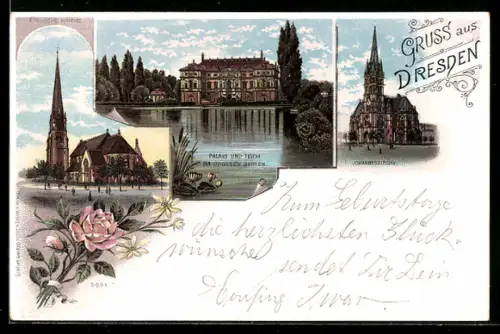 ENGLISCHE KIRCHE
GRUSS aus
DRESDEN
PALAIS UND TEICH
IM GROSSEN GARTEN.
JOHANNESKIRCHE
Zum Geburtstage
die herzlichsten Glück-
wünsche
sendet Dir Dein